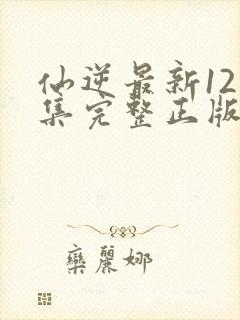 仙逆最新12
集完整正版
欒麗娜